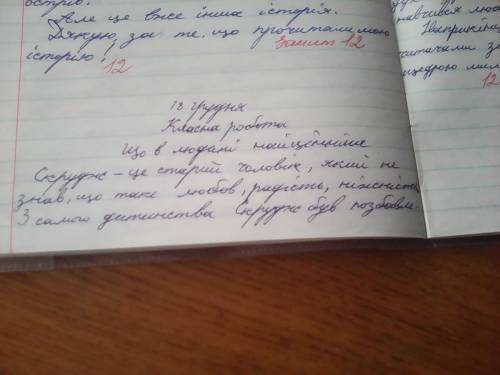 острів.
Але це вже інша історія.
Дякую, за те. що прочитали мою
історію! Запит 12
12
18 грудня
Класна робота
Що в людині найцінніше
Скрудж – це старий чоловік, який не
знав, що таке любов, радість, ніжність
З самого дитинства Скрудж був позбавле-
навчився люб
Наприкінц
читачами з
щедрою мил
12